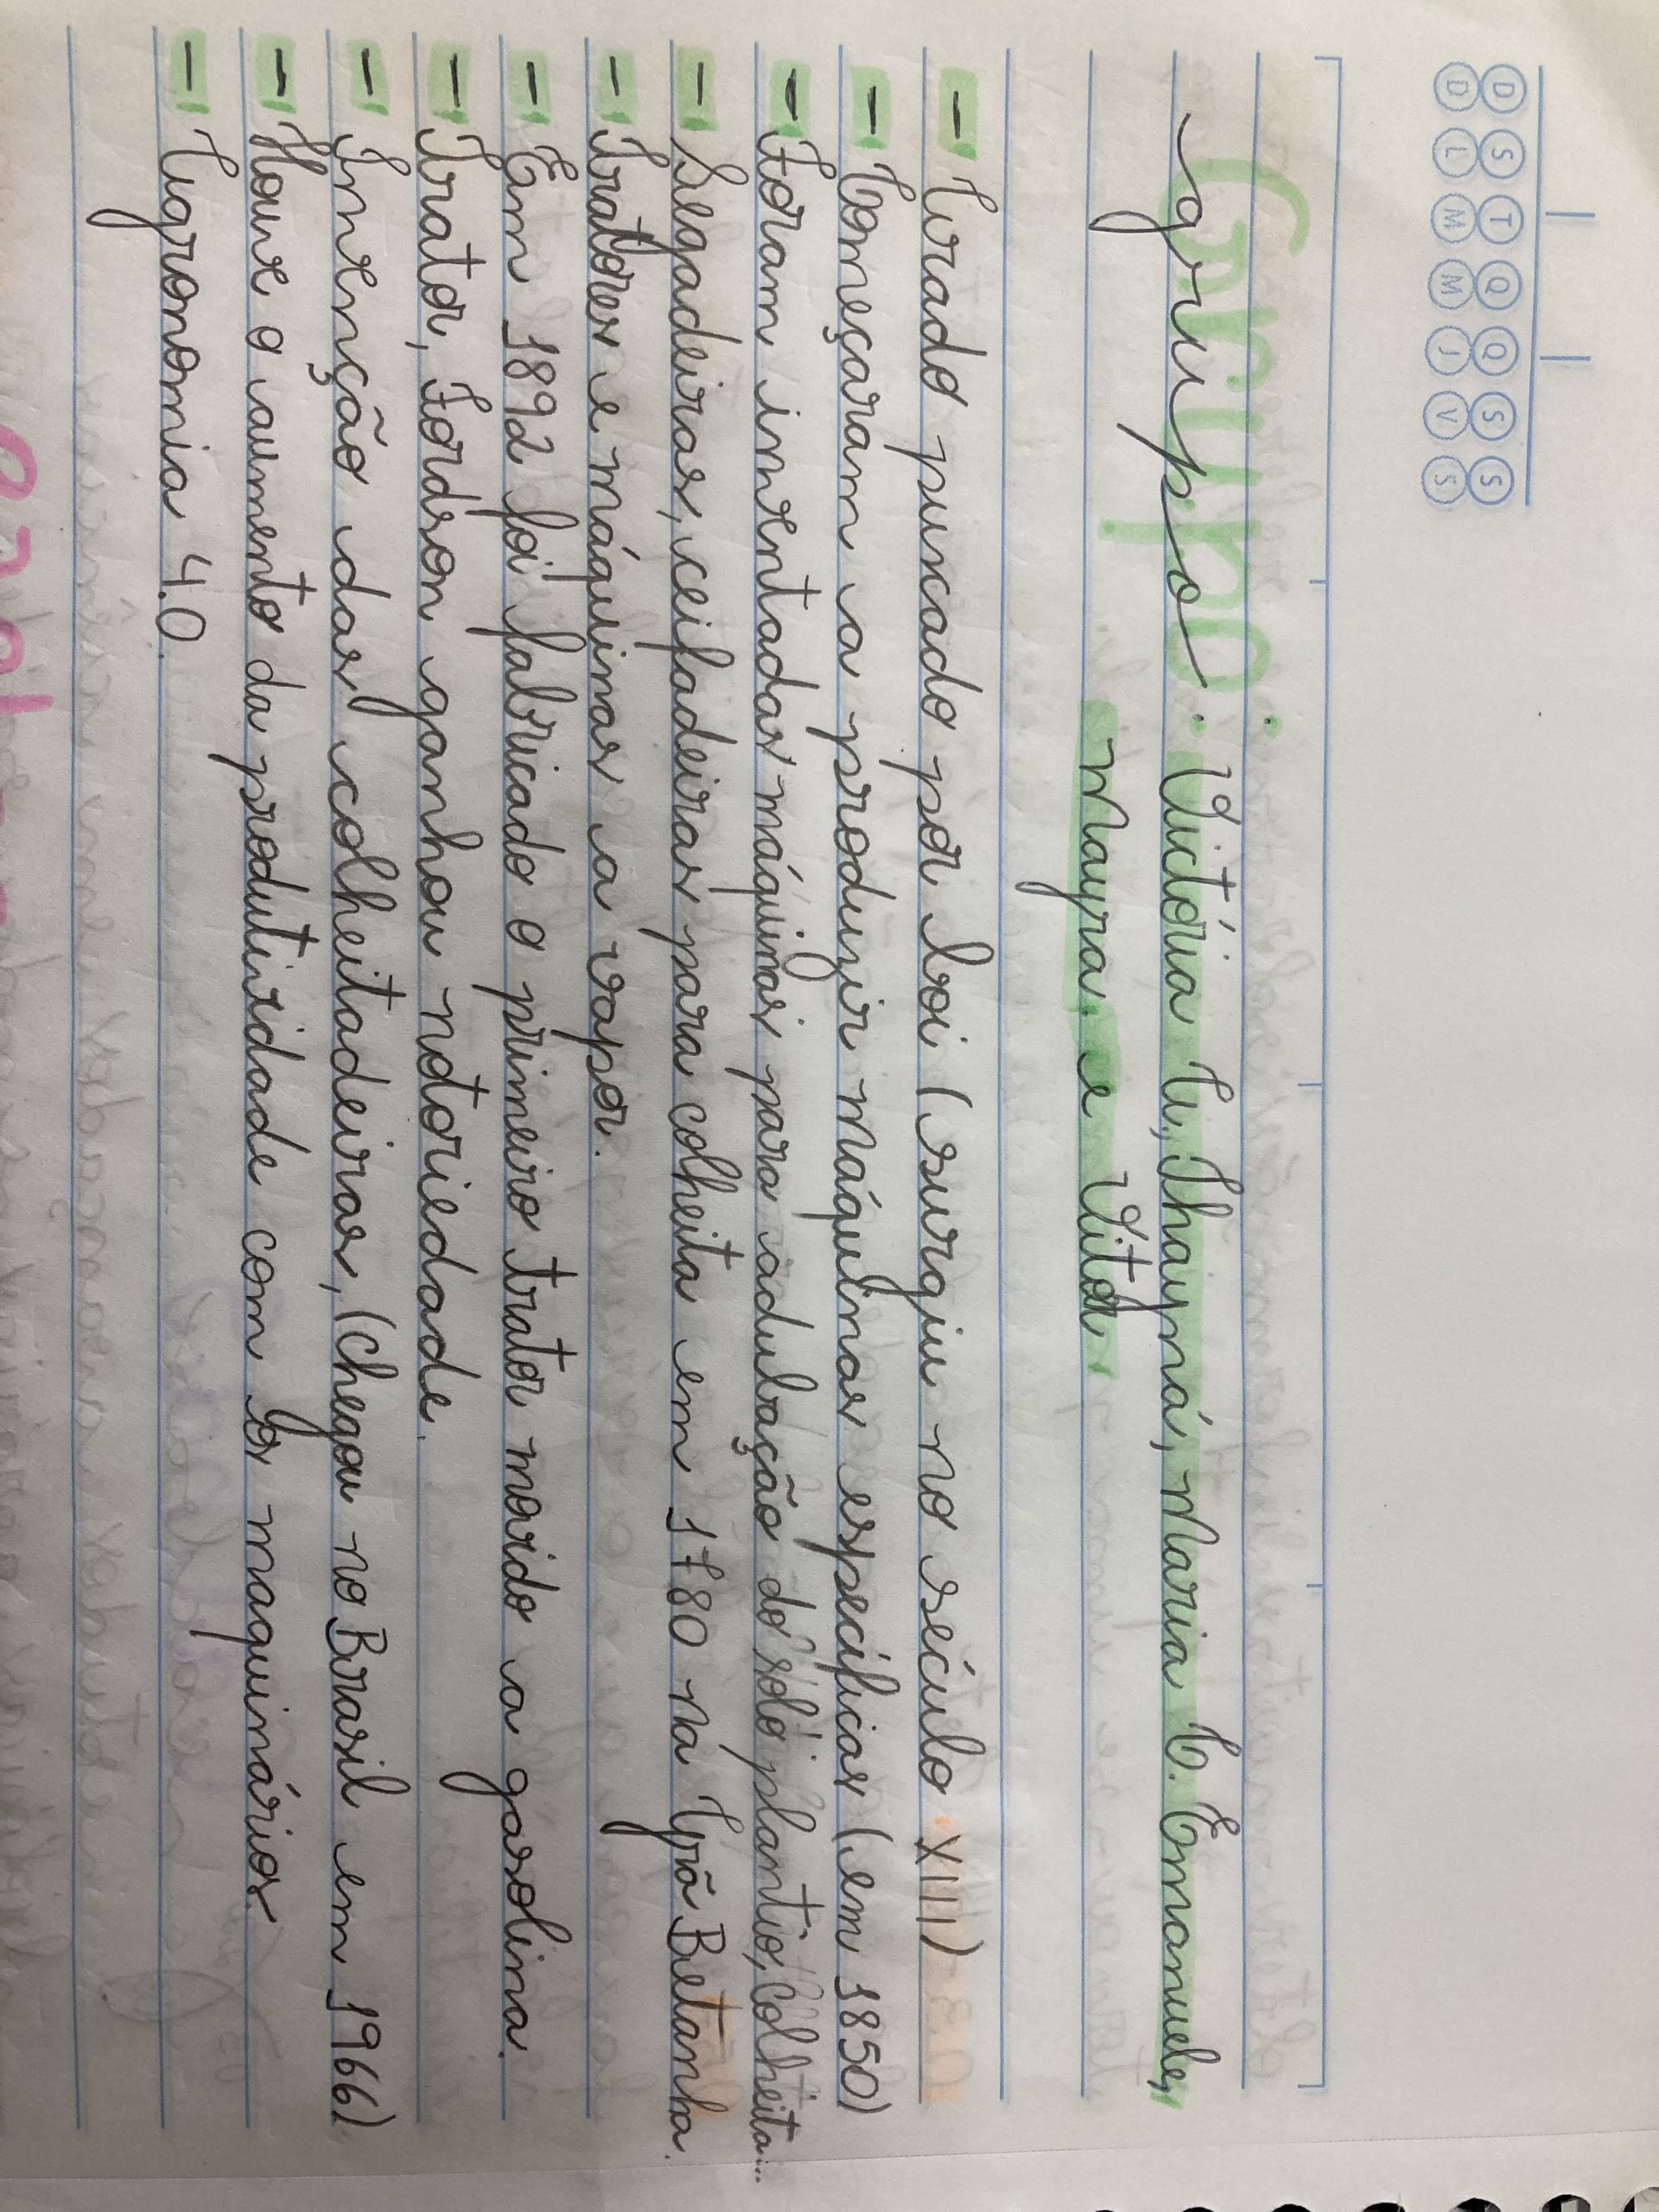 D S T Q Q S S
D L M M J V S
grupo: Victória A, Thayná, Maria C. Emanuele,
Mayra e Vitor
- Arado puxado por boi (surgiu no século XIII)
- Começaram a produzir máquinas específicas (em 1850)
- Foram inventadas máquinas para adubação do solo, plantio, colheita...
- Selgadeiras, ceifadeiras para colheita em 1780 na Grã Betanha.
- Tratores e máquinas a vapor.
- Em 1892 foi fabricado o primeiro trator movido a gasolina.
- Trator, Fordson ganhou notoriedade.
- Invenção das colheitadeiras, (chegou no Brasil em 1966)
- Houve o aumento da produtividade com os maquinários.
- Agronomia 4.0